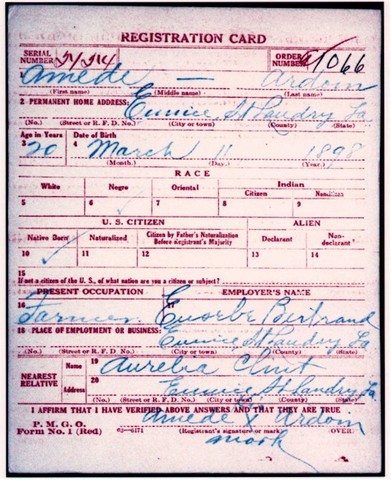 REGISTRATION CARD
SERIAL NUMBER ORDER NUMBER 1066
Amede — Ardoin
(First name) (Middle name) (Last name)
2 PERMANENT HOME ADDRESS: Eunice St Landry La
(No.) (Street or R. F. D. No.) (City or town) (County) (State)
Age in Years Date of Birth
3 20 4 March 11 1898
(Month.) (Day.) (Year.)
RACE
White Negro Oriental Indian
Citizen Noncitizen
5 6 ✓ 7 8 9
U. S. CITIZEN ALIEN
Native Born Naturalized Citizen by Father's Naturalization Before Registrant's Majority Declarant Non-declarant
10 ✓ 11 12 13 14
15
If not a citizen of the U. S., of what nation are you a citizen or subject?
PRESENT OCCUPATION EMPLOYER'S NAME
16 Farmer 17 Eusebe Bertrand
18 PLACE OF EMPLOYMENT OR BUSINESS: Eunice St Landry La
(No.) (Street or R. F. D. No.) (City or town) (County) (State)
NEAREST RELATIVE Name 19 Aurelia
Address 20 Eunice St Landry La
(No.) (Street or R. F. D. No.) (City or town) (County) (State)
I AFFIRM THAT I HAVE VERIFIED ABOVE ANSWERS AND THAT THEY ARE TRUE
P. M. G. O.
Form No. 1 (Red) 03—6171 Amede X Ardoin
(Registrant's signature or mark) (OVER)
mark